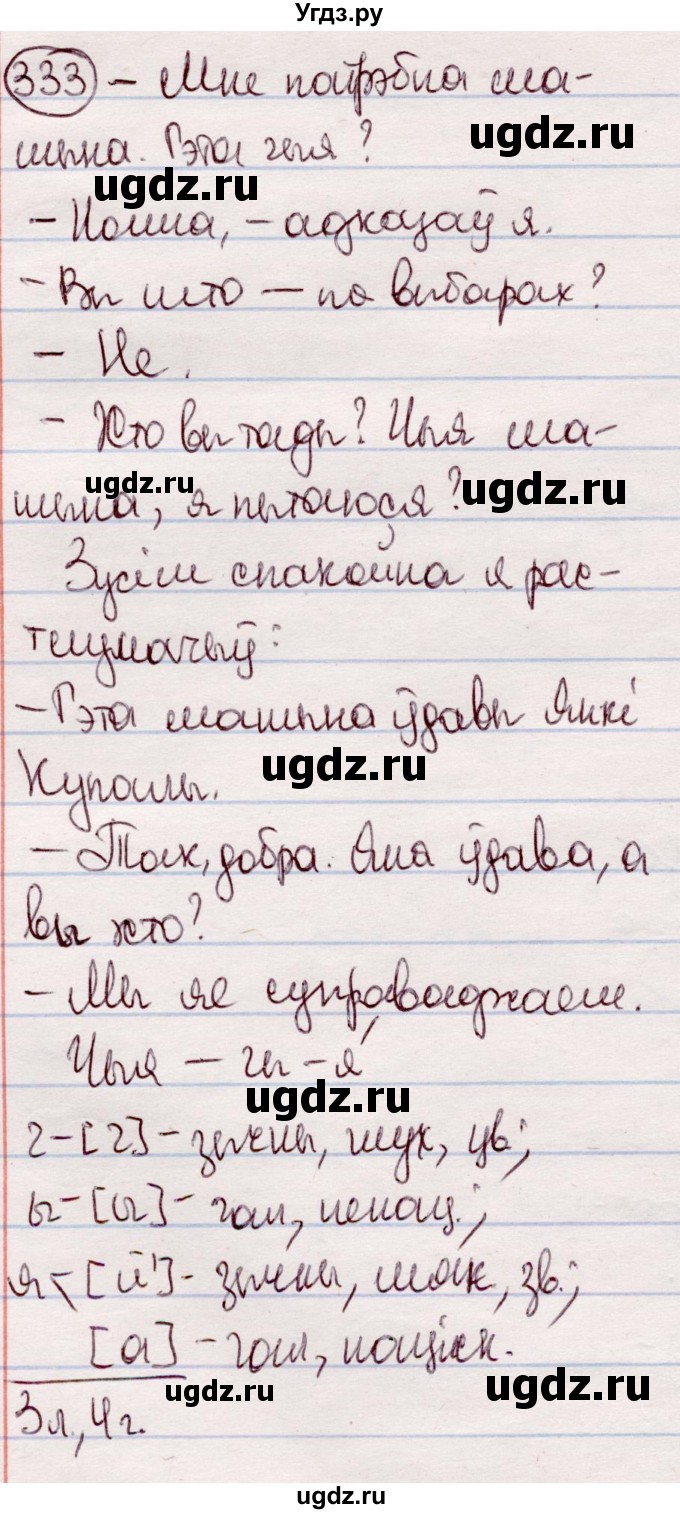 Угдз.ру
333 – Мне патрэбна ма-
шына. Гэта чыя?
– Наша, – адказаў я.
– Вы што – па выбарах?
– Не.
– Хто вы тады? Чыя ма-
шына, я пытаюся?
Зусім спакойна я рас-
тлумачыў:
– Гэта машына ўдавы Янкі
Купалы.
– Так, добра. Яна ўдава, а
вы хто?
– Мы яе суправаджаем.
Чыя – чы-я́
ч – [ч] – зычны, глух., цв.;
ы – [ы] – гал., ненац.;
я < [й'] – зычны, мяк., зв.;
[а] – гал., націск.
3 л., 4 г.
ugdz.ru
ugdz.ru
ugdz.ru
ugdz.ru
ugdz.ru
ugdz.ru
ugdz.ru
ugdz.ru
ugdz.ru
ugdz.ru